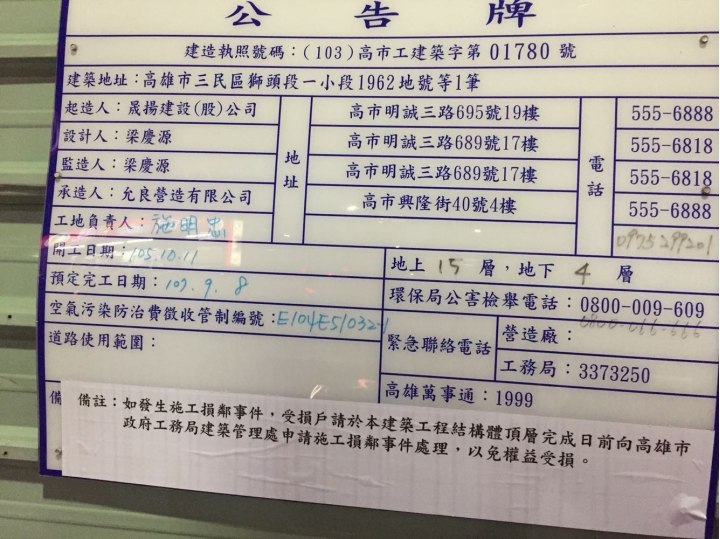 公告牌
建造執照號碼：（103）高市工建築字第 01780 號
建築地址：高雄市三民區獅頭段一小段1962地號等1筆
起造人：晟揚建設(股)公司 地址 高市明誠三路695號19樓 電話 555-6888
設計人：梁慶源 高市明誠三路689號17樓 555-6818
監造人：梁慶源 高市明誠三路689號17樓 555-6818
承造人：允良營造有限公司 高市興隆街40號4樓 555-6888
工地負責人：施明忠 0975299201
開工日期：105.10.11 地上 15 層，地下 4 層
預定完工日期：107.9.8 環保局公害檢舉電話：0800-009-609
空氣污染防治費徵收管制編號：E104E51032-1 緊急聯絡電話 營造廠：0800-066-666
道路使用範圍： 工務局：3373250
高雄萬事通：1999
備
備註：如發生施工損鄰事件，受損戶請於本建築工程結構體頂層完成日前向高雄市
政府工務局建築管理處申請施工損鄰事件處理，以免權益受損。